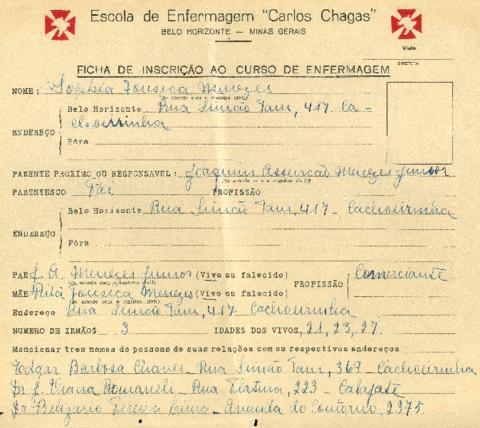 Escola de Enfermagem "Carlos Chagas"
BELO HORIZONTE — MINAS GERAIS
Visto
DIRETORA
FICHA DE INSCRIÇÃO AO CURSO DE ENFERMAGEM
NOME: Sophia Fonseca Menezes
(de acordo com o registro civil)
Belo Horizonte Rua Simão Tam, 417. Ca-
choeirinha
ENDEREÇO
Fóra
PARENTE PROXIMO OU RESPONSAVEL: Joaquim Assunção Menezes Junior
PARENTESCO Pai PROFISSÃO
Belo Horizonte Rua Simão Tam, 417 - Cachoeirinha
ENDEREÇO
Fóra
PAE J. A. Menezes Junior (Vivo ou falecido) PROFISSÃO Comerciante
(de acordo com o registro civil)
MÃE Rita Fonseca Menezes (Vivo ou falecido)
(de acordo com o registro civil)
Endereço Rua Simão Tam, 417 Cachoeirinha
NUMERO DE IRMÃOS 3 IDADES DOS VIVOS, 21, 23, 27.
Mencionar tres nomes de pessoas de suas relações com os respectivos endereços
Edgar Barbosa Chaves - Rua Simão Tam, 369 - Cachoeirinha
Dr. J. Viana Romaneli - Rua Platina, 223 - Calafate
Dr. Belizario - Avenida do Contorno, 2375.